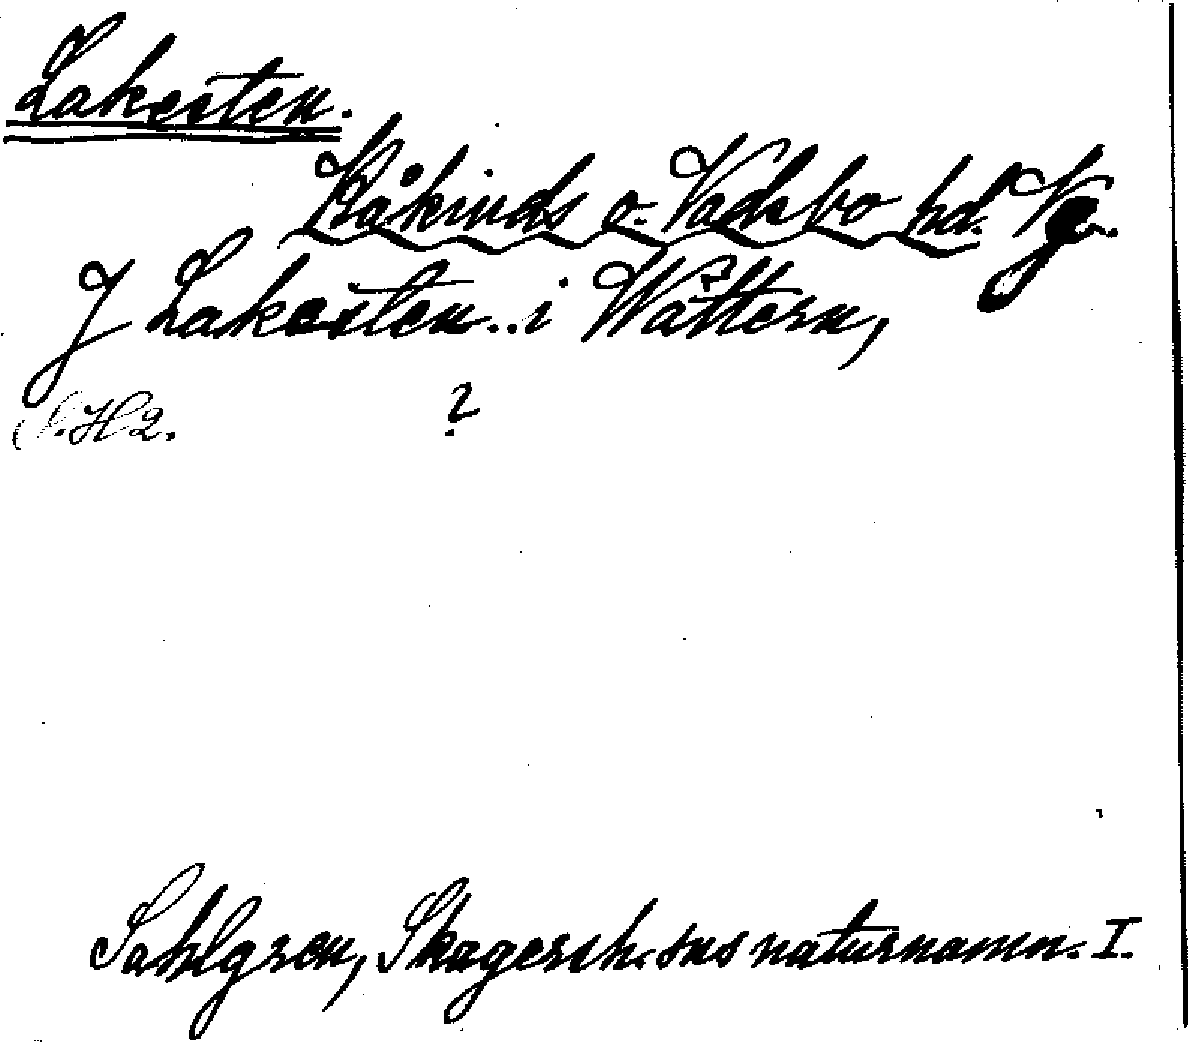 Lakesten.
Kåkinds o. Vadsbo hd. Vg.
J Lakesten.. i Wättern,
S.H2. ?
Sahlgren, Skagersh:sns naturnamn. I.